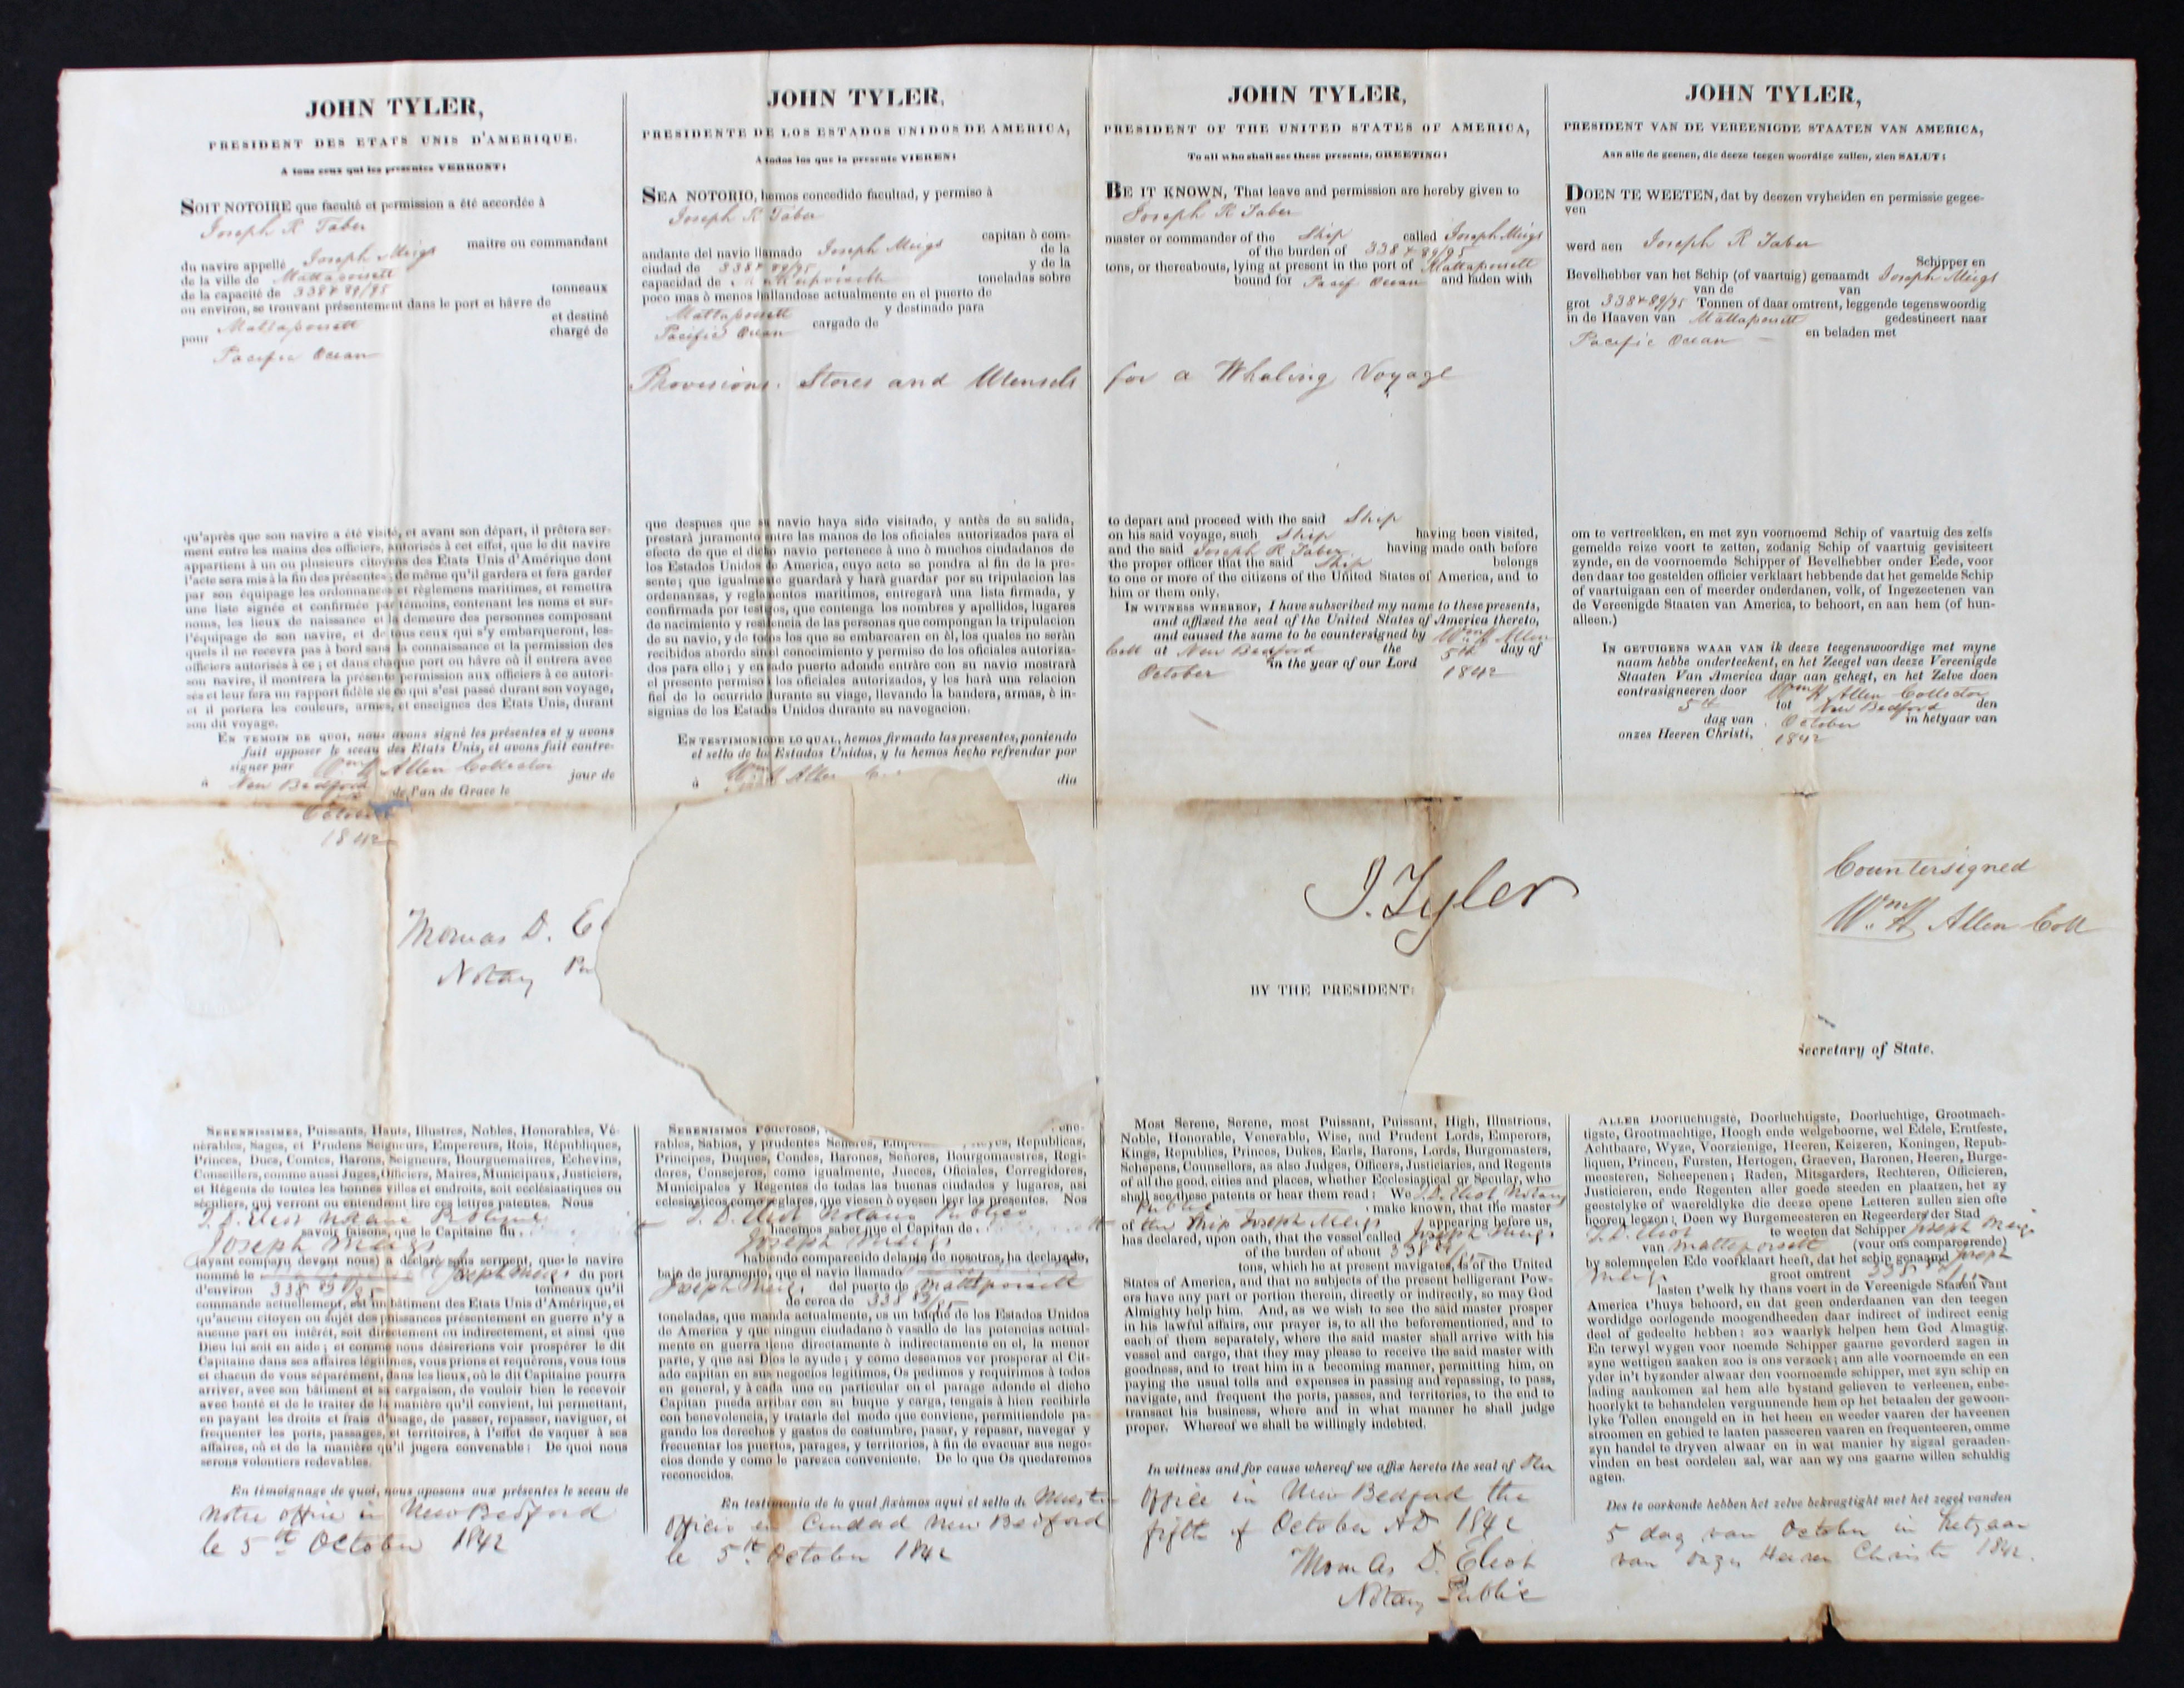 JOHN TYLER,
PRESIDENT DES ETATS UNIS D'AMERIQUE.
A tous ceux qui les presentes VERRONT:
SOIT NOTOIRE que faculté et permission a été accordée à
Joseph R Taber
maitre ou commandant
du navire appellé Joseph Meigs
de la ville de Mattapoisett
de la capacité de 338 & 89/95 tonneaux
ou environ, se trouvant présentement dans le port et hâvre de
Mattapoisett et destiné
pour chargé de
Pacific Ocean
qu'après que son navire a été visité, et avant son départ, il prêtera ser-
ment entre les mains des officiers, autorisés à cet effet, que le dit navire
appartient à un ou plusieurs citoyens des Etats Unis d'Amérique dont
l'acte sera mis à la fin des présentes; de même qu'il gardera et fera garder
par son équipage les ordonnances et règlemens maritimes, et remettra
une liste signée et confirmée par témoins, contenant les noms et sur-
noms, les lieux de naissance et la demeure des personnes composant
l'équipage de son navire, et de tous ceux qui s'y embarqueront, les-
quels il ne recevra pas à bord sans la connaissance et la permission des
officiers autorisés à ce; et dans chaque port ou hâvre où il entrera avec
son navire, il montrera la présente permission aux officiers à ce autori-
sés et leur fera un rapport fidèle de ce qui s'est passé durant son voyage,
et il portera les couleurs, armes, et enseignes des Etats Unis, durant
son dit voyage.
EN TEMOIN DE QUOI, nous avons signé les présentes et y avons
fait apposer le sceau des Etats Unis, et avons fait contre-
signer par Wm H Allen Collector
à New Bedford jour de
de l'an de Grace le
October
1842
Thomas D. El
Notary Pu
SERENISSIMES, Puissants, Hauts, Illustres, Nobles, Honorables, Vé-
nérables, Sages, et Prudens Seigneurs, Empereurs, Rois, Républiques,
Princes, Ducs, Comtes, Barons, Seigneurs, Bourguemaitres, Echevins,
Conseillers, comme aussi Juges, Officiers, Maires, Municipaux, Justiciers,
et Régents de toutes les bonnes villes et endroits, soit ecclésiastiques ou
séculiers, qui verront ou entendront lire ces lettres patentes. Nous
T. D. Eliot Notaire Publique
savoir faisons, que le Capitaine du
Joseph Meigs
(ayant comparu devant nous) a déclaré sous serment, que le navire
nommé le Joseph Meigs du port
d'environ 338 89/95 tonneaux qu'il
commande actuellement, est un bâtiment des Etats Unis d'Amérique, et
qu'aucun citoyen ou sujet des puissances présentement en guerre n'y a
aucune part ou intérêt, soit directement ou indirectement, et ainsi que
Dieu lui soit en aide; et comme nous désirerions voir prospérer le dit
Capitaine dans ses affaires légitimes, vous prions et requérons, vous tous
et chacun de vous séparément, dans les lieux, où le dit Capitaine pourra
arriver, avec son bâtiment et sa cargaison, de vouloir bien le recevoir
avec bonté et de le traiter de la manière qu'il convient, lui permettant,
en payant les droits et frais d'usage, de passer, repasser, naviguer, et
frequenter les ports, passages, et territoires, à l'effet de vaquer à ses
affaires, où et de la manière qu'il jugera convenable: De quoi nous
serons volontiers redevables.
En témoignage de quoi, nous aposons aux présentes le sceau de
notre office in New Bedford
le 5th October 1842
JOHN TYLER,
PRESIDENTE DE LOS ESTADOS UNIDOS DE AMERICA,
A todos los que la presente VIEREN:
SEA NOTORIO, hemos concedido facultad, y permiso à
Joseph R Taber
capitan ò com-
andante del navio llamado Joseph Meigs de la
ciudad de 338 & 89/95 y de la
capacidad de Mattapoisett toneladas sobre
poco mas ò menos hallandose actualmente en el puerto de
Mattapoisett y destinado para
Pacific Ocean cargado de
Provisions, Stores and Utensils for a Whaling Voyage
que despues que su navio haya sido visitado, y antès de su salida,
prestarà juramento entre las manos de los oficiales autorizados para el
efecto de que el dicho navio pertenece à uno ò muchos ciudadanos de
los Estados Unidos de America, cuyo acto se pondra al fin de la pre-
sente; que igualmente guardarà y harà guardar por su tripulacion las
ordenanzas, y reglamentos maritimos, entregarà una lista firmada, y
confirmada por testigos, que contenga los nombres y apellidos, lugares
de nacimiento y residencia de las personas que compongan la tripulacion
de su navio, y de todos los que se embarcaren en èl, los quales no seràn
recibidos abordo sin el conocimiento y permiso de los oficiales autoriza-
dos para ello; y en cado puerto adonde entràre con su navio mostrarà
el presente permiso à los oficiales autorizados, y les harà una relacion
fiel de lo ocurrido durante su viage, llevando la bandera, armas, è in-
signias de los Estados Unidos durante su navegacion.
EN TESTIMONIO DE LO QUAL, hemos firmado las presentes, poniendo
el sello de los Estados Unidos, y la hemos hecho refrendar por
Wm H Allen
à dia
SERENISIMOS Poderosos,
rables, Sabios, y prudentes Señores, Reyes, Republicas,
Principes, Duques, Condes, Barones, Señores, Bourgomaestres, Regi-
dores, Consejeros, como igualmente, Jueces, Oficiales, Corregidores,
Municipales y Regentes de todas las buenas ciudades y lugares, asi
eclesiasticos como seglares, que viesen ò oyesen leer las presentes. Nos
T. D. Eliot Notario Publico
hacemos saber que el Capitan de
Joseph Meigs
habiendo comparecido delante de nosotros, ha declarado,
bajo de juramento, que el navio llamado
Joseph Meigs del puerto de Mattapoisett
de cerca de 338 89/95
toneladas, que manda actualmente, es un buque de los Estados Unidos
de America y que ningun ciudadano ò vasallo de las potencias actual-
mente en guerra tiene directamente ò indirectamente en el, la menor
parte, y que asi Dios le ayude; y como deseamos ver prosperar al Cit-
ado capitan en sus negocios legitimos, Os pedimos y requirimos à todos
en general, y à cada uno en particular en el parage adonde el dicho
Capitan pueda arribar con su buque y carga, tengais à bien recibirle
con benevolencia, y tratarle del modo que conviene, permitiendole pa-
gando los derechos y gastos de costumbre, pasar, y repasar, navegar y
frecuentar los puertos, parages, y territorios, à fin de evacuar sus nego-
cios donde y como le parezca conveniente. De lo que Os quedaremos
reconocidos.
En testimonio de lo qual fixàmos aqui el sello de
Officio en Ciudad New Bedford
le 5th October 1842
JOHN TYLER,
PRESIDENT OF THE UNITED STATES OF AMERICA,
To all who shall see these presents, GREETING:
BE IT KNOWN, That leave and permission are hereby given to
Joseph R Taber
master or commander of the Ship called Joseph Meigs
of the burden of 338 & 89/95
tons, or thereabouts, lying at present in the port of Mattapoisett
bound for Pacif Ocean and laden with
to depart and proceed with the said Ship
on his said voyage, such Ship having been visited,
and the said Joseph R Taber having made oath before
the proper officer that the said Ship belongs
to one or more of the citizens of the United States of America, and to
him or them only.
IN WITNESS WHEREOF, I have subscribed my name to these presents,
and affixed the seal of the United States of America thereto,
and caused the same to be countersigned by Wm H Allen
Coll at New Bedford the 5th day of
October in the year of our Lord 1842
J. Tyler
BY THE PRESIDENT:
Most Serene, Serene, most Puissant, Puissant, High, Illustrious,
Noble, Honorable, Venerable, Wise, and Prudent Lords, Emperors,
Kings, Republics, Princes, Dukes, Earls, Barons, Lords, Burgomasters,
Schepens, Counsellors, as also Judges, Officers, Justiciaries, and Regents
of all the good, cities and places, whether Ecclesiastical or Secular, who
shall see these patents or hear them read: We T. D. Eliot Notary
Public make known, that the master
of the Ship Joseph Meigs appearing before us,
has declared, upon oath, that the vessel called Joseph Meigs
of the burden of about 338 89/95
tons, which he at present navigates, is of the United
States of America, and that no subjects of the present belligerant Pow-
ers have any part or portion therein, directly or indirectly, so may God
Almighty help him. And, as we wish to see the said master prosper
in his lawful affairs, our prayer is, to all the beforementioned, and to
each of them separately, where the said master shall arrive with his
vessel and cargo, that they may please to receive the said master with
goodness, and to treat him in a becoming manner, permitting him, on
paying the usual tolls and expenses in passing and repassing, to pass,
navigate, and frequent the ports, passes, and territories, to the end to
transact his business, where and in what manner he shall judge
proper. Whereof we shall be willingly indebted.
In witness and for cause whereof we affix hereto the seal of Our
Office in New Bedford the
fifth of October AD 1842
Thomas D. Eliot
Notary Public
JOHN TYLER,
PRESIDENT VAN DE VEREENIGDE STAATEN VAN AMERICA,
Aan alle de geenen, die deeze teegen woordige zullen, zien SALUT:
DOEN TE WEETEN, dat by deezen vryheiden en permissie gegee-
ven
werd aen Joseph R Taber
Schipper en
Bevelhebber van het Schip (of vaartuig) genaamdt Joseph Meigs
van de van
grot 338 & 89/95 Tonnen of daar omtrent, leggende tegenswoordig
in de Haaven van Mattapoisett gedestineert naar
Pacific Ocean en beladen met
om te vertreekken, en met zyn voornoemd Schip of vaartuig des zelfs
gemelde reize voort te zetten, zodanig Schip of vaartuig gevisiteert
zynde, en de voornoemde Schipper of Bevelhebber onder Eede, voor
den daar toe gestelden officier verklaart hebbende dat het gemelde Schip
of vaartuigaan een of meerder onderdanen, volk, of Ingezeetenen van
de Vereenigde Staaten van America, to behoort, en aan hem (of hun-
alleen.)
IN GETUIGENS WAAR VAN ik deeze teegenswoordige met myne
naam hebbe onderteekent, en het Zeegel van deeze Vereenigde
Staaten Van America daar aan gehegt, en het Zelve doen
contrasigneeren door Wm H Allen Collector
5th tot New Bedford den
dag van October in hetyaar van
onzes Heeren Christi, 1842
Countersigned
Wm H Allen Coll
Secretary of State.
ALLER Doorluchtigste, Doorluchtigste, Doorluchtige, Grootmach-
tigste, Grootmachtige, Hoogh ende welgeboorne, wel Edele, Erntfeste,
Achtbaare, Wyze, Voorzienige, Heeren, Keizeren, Koningen, Repub-
liquen, Princen, Fursten, Hertogen, Graeven, Baronen, Heeren, Burge-
meesteren, Scheepenen; Raden, Mitsgarders, Rechteren, Officieren,
Justicieren, ende Regenten aller goede steeden en plaatzen, het zy
geestelyke of waereldlyke die deeze opene Letteren zullen zien ofte
hooren leezen: Doen wy Burgemeesteren en Regeerders der Stad
T. D. Eliot te weeten dat Schipper Joseph Meigs
van Mattapoisett (voor ons compareerende)
by solemneelen Ede voorklaart heeft, dat het schip genaamd Joseph
Meigs groot omtrent 338 89/95
lasten t'welk hy thans voert in de Vereenigde Staaten vant
America t'huys behoord, en dat geen onderdaanen van den teegen
wordidge oorlogende moogendheeden daar indirect of indirect eenig
deel of gedeelte hebben: zoo waarlyk helpen hem God Almagtig.
En terwyl wygen voor noemde Schipper gaarne gevorderd zagen in
zyne wettigen zaaken zoo is ons verzoek; ann alle voornoemde en een
yder in't byzonder alwaar den voornoemde schipper, met zyn schip en
lading aankomen zal hem alle bystand gelieven te verleenen, enbe-
hoorlykt te behandelen vergunnende hem op het betaalen der gewoon-
lyke Tollen enongeld en in het heen en weeder vaaren der haveenen
stroomen en gebied te laaten passceren vaaren en frequenteeren, omme
zyn handel te dryven alwaar en in wat manier hy zigzal geraaden-
vinden en best oordelen zal, war aan wy ons gaarne willen schuldig
agten.
Des te oorkonde hebben het zelve bekragtight met het zegel vanden
5 dag van October in hetyaar
van onzes Heeren Christi 1842.